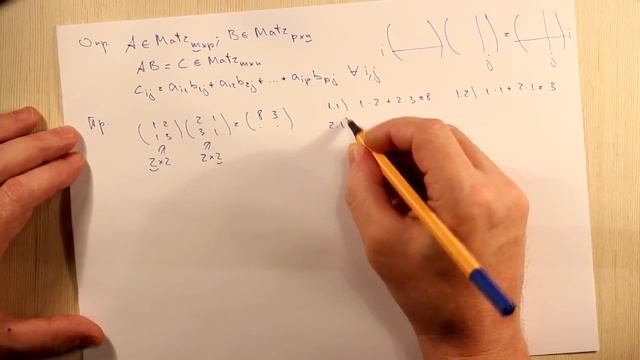 Опр. A ∈ Mat_{m×p}; B ∈ Mat_{p×n}
AB = C ∈ Mat_{m×n}
c_{ij} = a_{i1}b_{1j} + a_{i2}b_{2j} + ... + a_{ip}b_{pj} ∀ i,j
i ( ) ( ) = ( ) i
j j
Пр. (1 2; 1 3) (2 1; 3 1) = (8 3; . .)
2×2 2×2
1.1) 1·2 + 2·3 = 8 1.2) 1·1 + 2·1 = 3
2.1